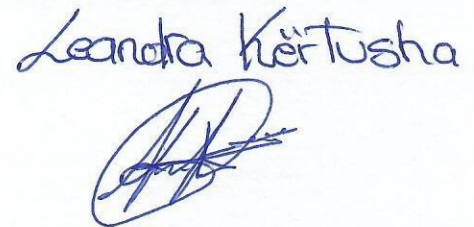 Leandra Kërtusha